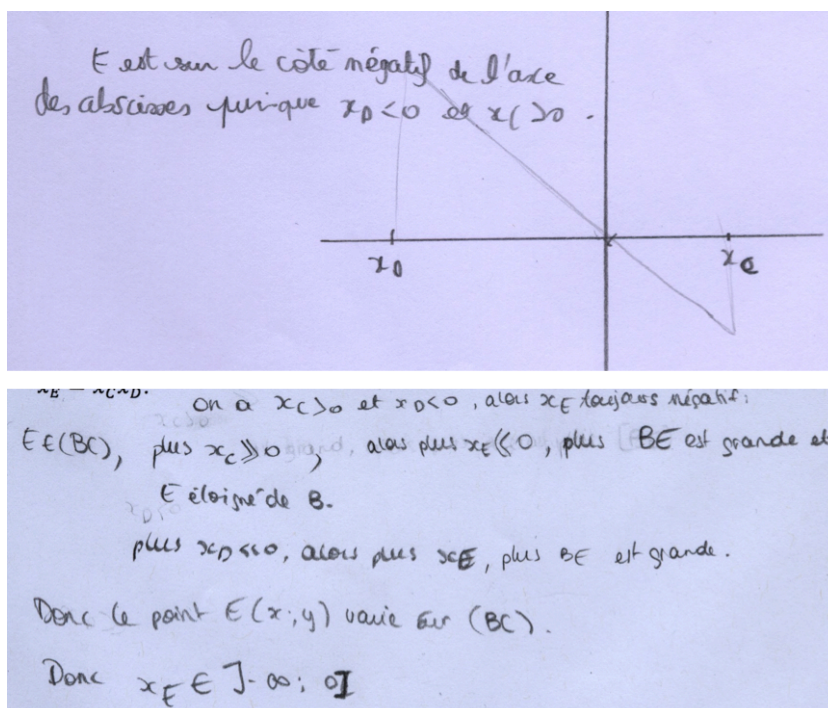 E est sur le côté négatif de l'axe
des abscisses puisque x_D<0 et x_C>0.
x_D
x_C
x_E = x_C x_D.
On a x_C>0 et x_D<0, alors x_E toujours négatif:
E∈(BC), plus x_C≫0, alors plus x_E≪0, plus BE est grande et
E éloigné de B.
plus x_D<<0, alors plus x_E, plus BE est grande.
Donc le point E(x;y) varie sur (BC).
Donc x_E ∈ ]-∞; 0]